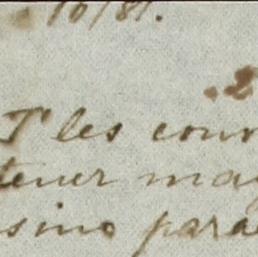 10/81.
2
I' les conv
tener may
sino para